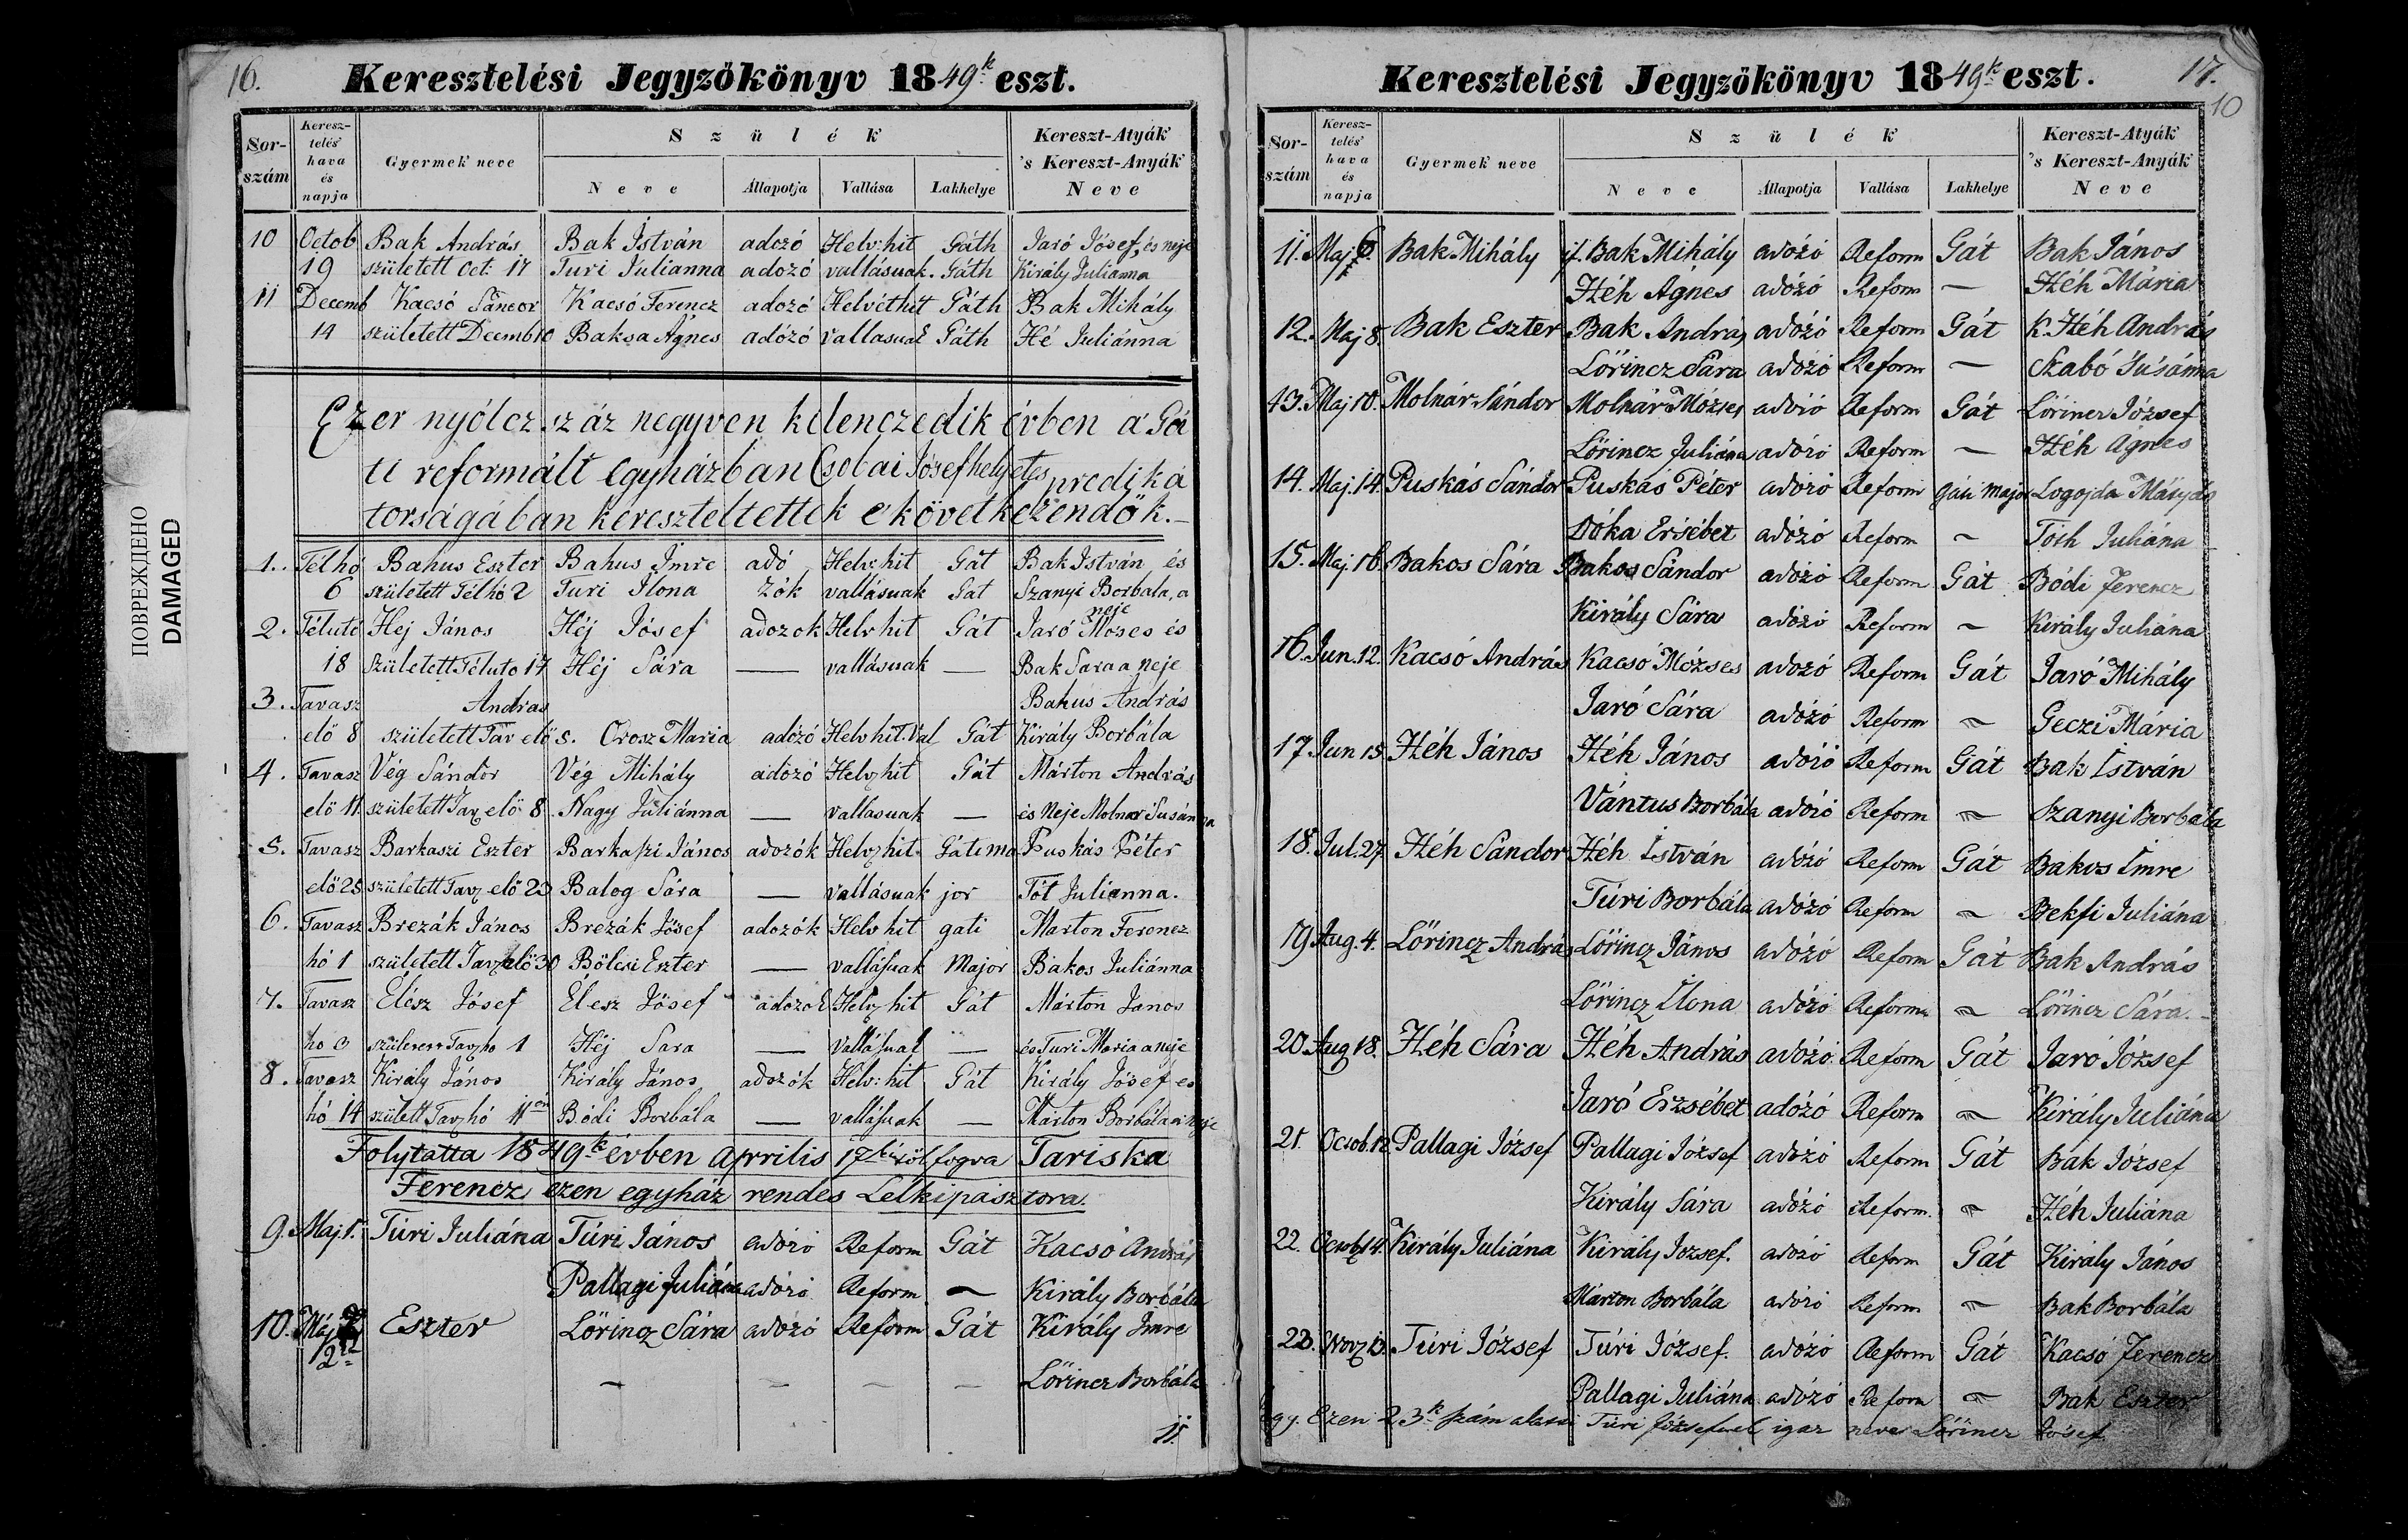 ПОВРЕЖДЕНО
DAMAGED
16.
Keresztelési Jegyzökönyv 1849k eszt.
Sor-szám
Keresz-telés' hava és napja
Gyermek neve
Szülék
Neve
Állapotja
Vallása
Lakhelye
Kereszt-Atyák 's Kereszt-Anyák Neve
10 Octob Bak András Bak István adozó Helv: hit Gáth Jaró Jósef, és neje
19 született Oct: 17 Turi Julianna adozó vallásuak. Gáth Király Julianna
11 Decemb Kacsó Sándor Kacsó Ferencz adozó Helvét hit Gáth Bak Mihály
14 született Decemb 10 Baksa Ágnes adózó vallasuak Gáth Hé Juliánna
Ezer nyólcz száz negyven kilenczedik évben a' Gá
ti reformált egyházban Csobai Jósef helyetes prediká
torságában kereszteltettek e' következendök.
1. Télhó Bahus Eszter Bahus Imre adó Helv: hit Gát Bak István és
6 született Télhó 2 Turi Ilona zók vallásuak Gat Szanyi Borbala, a neje
2. Télutó Hej János Héj Jósef adozok Helv hit Gát Jaró Moses és
18 született Téluto 17 Héj Sára — vallásuak — Bak Sara a neje
3. Tavasz Andras Bahus András
elő 8 született Tav elő 5. Orosz Maria adózó Helv hit. Val Gát Király Borbála
4. Tavasz Vég Sándor Vég Mihály adózó Helv hit Gát Márton András
elő 11 született Tav elő 8 Nagy Juliánna — vallasuak — és Neje Molnar Susánna
5. Tavasz Barkaszi Eszter Barkaszi János adozók Helv hit Gáti ma Puskás Péter
elő 25 született Tav elő 23 Balog Sára — vallásuak jor Tót Julianna.
6. Tavasz Brezák János Brezák Jósef adozók Helv hit gati Marton Ferencz
hó 1 született Tav elő 30 Bölcsi Eszter — vallásuak Major Bakos Juliánna
7. Tavasz Élész Jósef Élesz Jósef adozok Helv hit Gát Márton Janos
ho 3 született Tav ho 1 Héj Sara — vallásuak — és Turi Maria a neje
8. Tavasz Király János Király János adozók Helv: hit Gát Király Jósef es
hó 14 születt Tav hó 11én Bódi Borbála — vallásuak — Marton Borbála a neje
Folytatta 1849k évben Aprilis 17től fogva Tariska
Ferencz ezen egyház rendes Lelkipásztora.
9. Maj 1. Túri Juliána Túri János adózó Reform Gát Kacsó András
Pallagi Juliána adózó Reform — Király Borbála
10. Máj 2 Eszter Lőrincz Sára adózó Reform Gát Király Imre
— — — — Lőrincz Borbála
11.
17.
10
Keresztelési Jegyzökönyv 1849k eszt.
Sor-szám
Keresz-telés' hava és napja
Gyermek neve
Szülék
Neve
Állapotja
Vallása
Lakhelye
Kereszt-Atyák 's Kereszt-Anyák Neve
11. Maj 6. Bak Mihály if. Bak Mihály adózó Reform Gát Bak János
Héh Ágnes adózó Reform — Héh Mária
12. Maj 8. Bak Eszter Bak András adózó Reform Gát K. Héh András
Lőrincz Sára adózó Reform — Szabó Susánna
13. Maj 10. Molnár Sándor Molnár Mózses adózó Reform Gát Lőrincz József
Lőrincz Juliána adózó Reform — Héh Ágnes
14. Maj. 14 Puskás Sándor Puskás Péter adózó Reform gáti major Logojda Mátyás
Dóka Ersébet adózó Reform ~ Tóth Juliána
15. Maj. 16. Bakos Sára Bakos Sándor adózó Reform Gát Bódi Ferencz
Király Sára adózó Reform ~ Király Juliána
16. Jun. 12. Kacsó András Kacsó Mózses adózó Reform Gát Jaró Mihály
Jaró Sára adózó Reform ~ Geczi Mária
17 Jun 15. Héh János Héh János adózó Reform Gát Bak István
Vántus Borbála adózó Reform ~ Szanyi Borbála
18. Jul. 27. Héh Sándor Héh István adózó Reform Gát Bakos Imre
Túri Borbála adózó Reform ~ Bekfi Juliána
19 Aug. 4. Lőrincz András Lőrincz János adózó Reform Gát Bak András
Lőrincz Ilona adózó Reform ~ Lőrincz Sára.
20 Aug 18. Héh Sára Héh András adózó Reform Gát Jaró József
Jaró Erzsébet adózó Reform ~ Király Juliána
21. Octob. 12 Pallagi József Pallagi József adózó Reform Gát Bak József
Király Sára adózó Reform. ~ Héh Juliána
22. Octob 14. Király Juliána Király Jozsef. adózó Reform Gát Király János
Márton Borbála adózó Reform ~ Bak Borbála
23. Nov 13. Túri József Túri József. adózó Reform Gát Kacsó Ferencz
Pallagi Juliána adózó Reform ~ Bak Eszter
Ezen 23k szám alatti Túri Józsefnek igaz neve Lőrincz Jósef